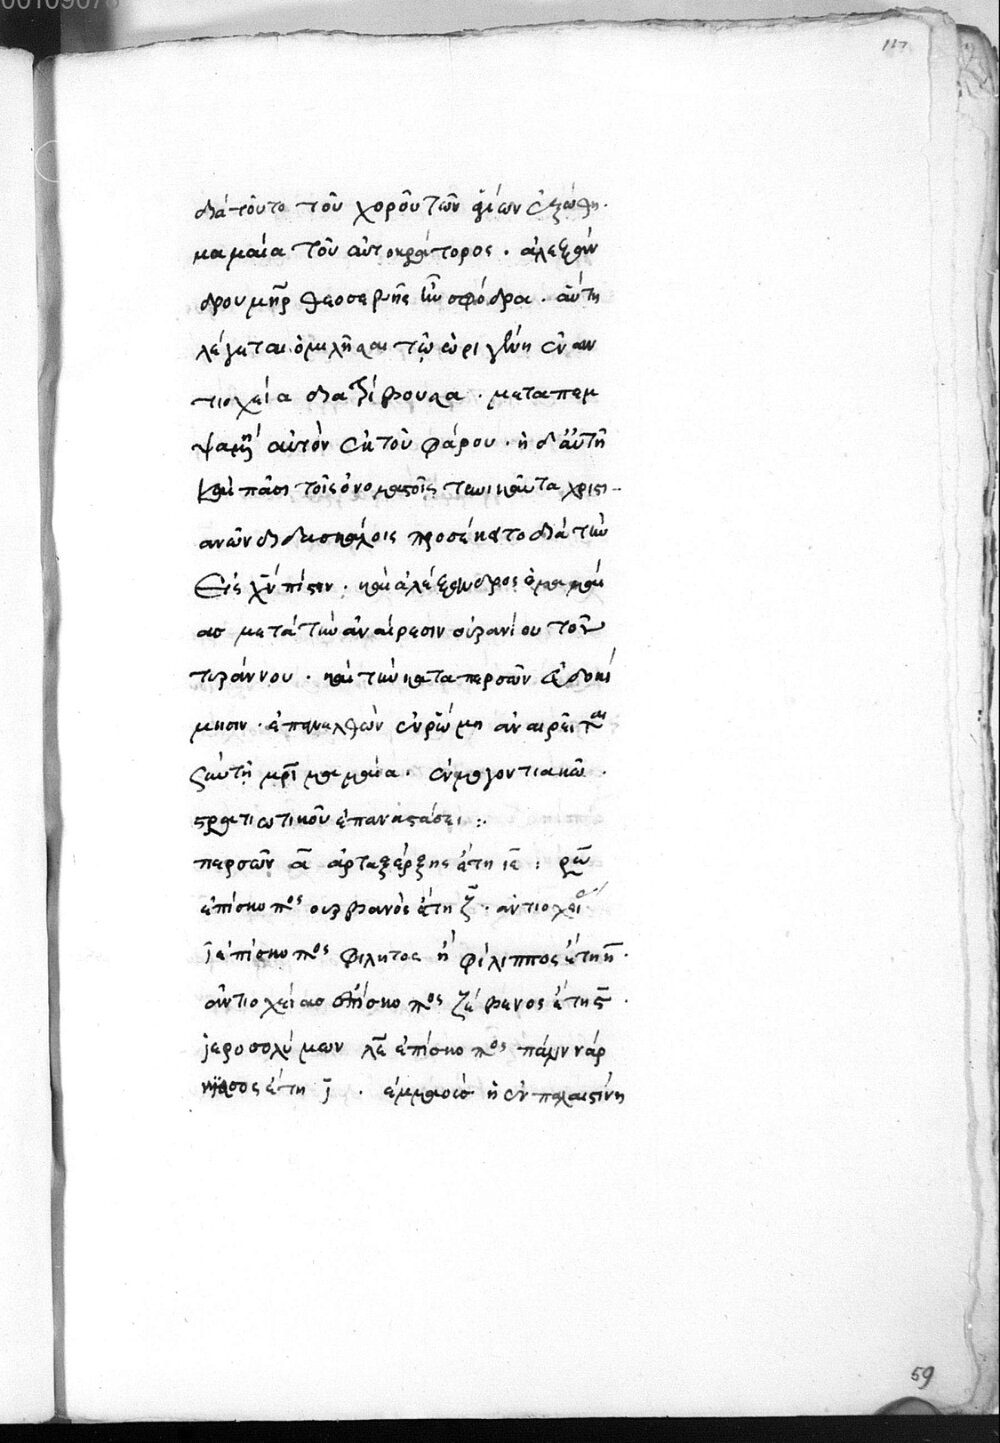 117
διά τοῦτο τοῦ χοροῦ τῶν ἁγίων ἐξώθη.
μαμαία τοῦ αὐτοκράτορος. ἀλεξάν
δρου μηρ θεοσεβὴς ἦν σφόδρα. αὕτη
λέγεται ὁμιλῆσαι τῶ ὠριγένη ἐν ἀν
τιοχεία διατρίβουσα. μεταπεμ
ψαμένη αὐτὸν ἐκ τοῦ φάρου. ἡ δ' αὐτὴ
καὶ πᾶσι τοῖς ὀνομαστοῖς τηνικαῦτα χριστι
ανῶν διδασκάλοις προσέκειτο διὰ τὴν
εἰς χν πίστιν. καὶ ἀλέξανδρος ὁ μαμαί
ασ μετὰ τὴν ἀναίρεσιν οὐρανίου τοῦ
τυράννου. καὶ τὴν κατὰ περσῶν εὐδοκί
μησιν. ἐπανελθὼν ἐν ῥώμη ἀναιρεῖται
σὺν τῆ μρι μαμαία. ἐν μαγοντιακῶ.
στρατιωτικοῦ ἐπαναστάσει:
περσῶν α ἀρταξέρξης ἔτη ιε: ρω
ἐπίσκοπος οὐρβανὸς ἔτη ζ. ἀντιοχεί
ι ἐπίσκοπος φιλητος ἢ φίλιππος ἔτη η.
ἀντιοχείασ ἐπίσκοπος ζέβενος ἔτη ϛ.
ἱεροσολύμων λε ἐπίσκοπος πάλιν νάρ
κισσος ἔτη ι. ἐμμαοὺσ ἡ ἐν παλαιστίνη
59